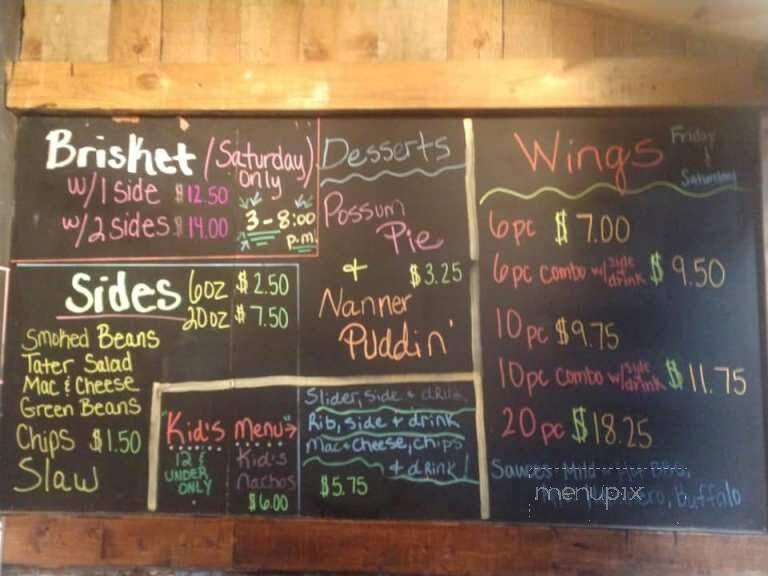 Brisket (Saturday) only
w/1 side $12.50
w/2 sides $14.00
3 - 8:00 p.m.
Sides 6oz $2.50
20oz $7.50
Smoked Beans
Tater Salad
Mac & Cheese
Green Beans
Chips $1.50
Slaw
Desserts
Possum
Pie
+ $3.25
Nanner
Puddin'
"Kid's Menu"→
12 &
UNDER
ONLY
Kid's
Nachos
$6.00
Slider, side + drink
Rib, side + drink
Mac+Cheese, chips
+ drink!
$5.75
Wings Friday
&
Saturday
6pc $7.00
6pc combo w/side + drink $9.50
10pc $9.75
10pc combo w/side + drink $11.75
20pc $18.25
Sauces Mild Hot BBQ,
Buffalo
menupix